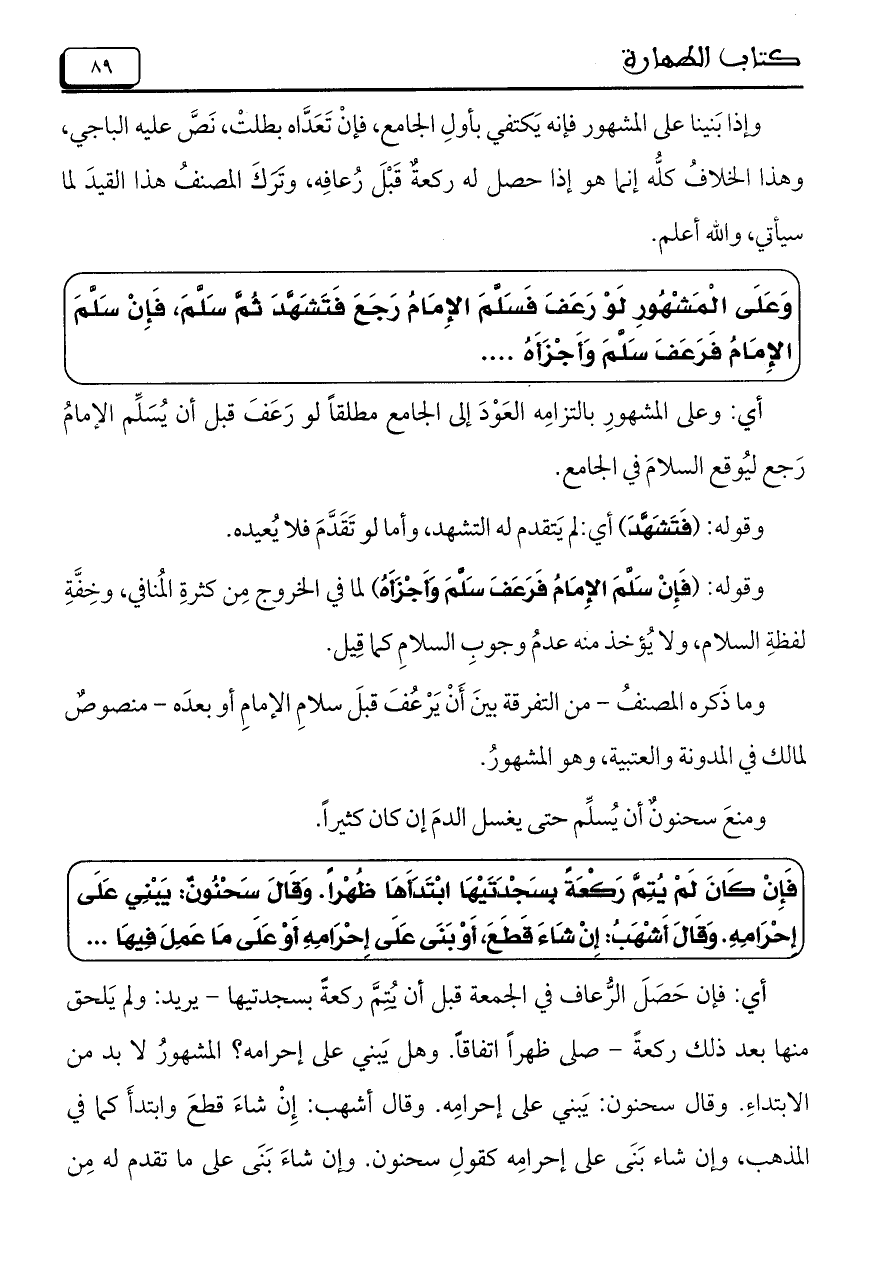 كتاب الطهارة
٨٩
وإذا بَنينا على المشهور فإنه يَكتفي بأولِ الجامع، فإنْ تَعَدَّاه بطلتْ، نَصَّ عليه الباجي،
وهذا الخلافُ كلُّه إنما هو إذا حصل له ركعةٌ قَبْلَ رُعافِه، وتَرَكَ المصنفُ هذا القيدَ لما
سيأتي، والله أعلم.
وَعَلَى الْمَشْهُورِ لَوْ رَعَفَ فَسَلَّمَ الإِمَامُ رَجَعَ فَتَشَهَّدَ ثُمَّ سَلَّمَ، فَإِنْ سَلَّمَ
الإِمَامُ فَرَعَفَ سَلَّمَ وَأَجْزَأَهُ ....
أي: وعلى المشهورِ بالتزامِه العَوْدَ إلى الجامع مطلقاً لو رَعَفَ قبل أن يُسَلِّم الإمامُ
رَجع ليُوقع السلامَ في الجامع.
وقوله: (فَتَشَهَّدَ) أي:لم يَتقدم له التشهد، وأما لو تَقَدَّمَ فلا يُعيده.
وقوله: (فَإِنْ سَلَّمَ الإِمَامُ فَرَعَفَ سَلَّمَ وَأَجْزَأَهُ) لما في الخروج مِن كثرةِ المُنافي، وخِفَّةِ
لفظةِ السلام، ولا يُؤخذ منه عدمُ وجوبِ السلامِ كما قِيل.
وما ذَكره المصنفُ – من التفرقة بينَ أَنْ يَرْعُفَ قبلَ سلامِ الإمامِ أو بعدَه – منصوصٌ
لمالك في المدونة والعتبية، وهو المشهورُ.
ومنعَ سحنونٌ أن يُسلِّم حتى يغسل الدمَ إن كان كثيراً.
فَإِنْ كَانَ لَمْ يُتِمَّ رَكْعَةً بِسَجْدَتَيْهَا ابْتَدَأَهَا ظُهْراً. وَقَالَ سَحْنُونٌ: يَبْنِي عَلَى
إِحْرَامِهِ. وَقَالَ أَشْهَبُ: إِنْ شَاءَ قَطَعَ، أَوْ بَنَى عَلَى إِحْرَامِهِ أَوْ عَلَى مَا عَمِلَ فِيهَا ...
أي: فإن حَصَلَ الرُّعاف في الجمعة قبل أن يُتِمَّ ركعةً بسجدتيها – يريد: ولم يَلحق
منها بعد ذلك ركعةً – صلى ظهراً اتفاقاً. وهل يَبني على إحرامه؟ المشهورُ لا بد من
الابتداءِ. وقال سحنون: يَبني على إحرامِه. وقال أشهب: إِنْ شاءَ قطعَ وابتدأَ كما في
المذهب، وإن شاء بَنَى على إحرامِه كقولِ سحنون. وإن شاءَ بَنَى على ما تقدم له مِن